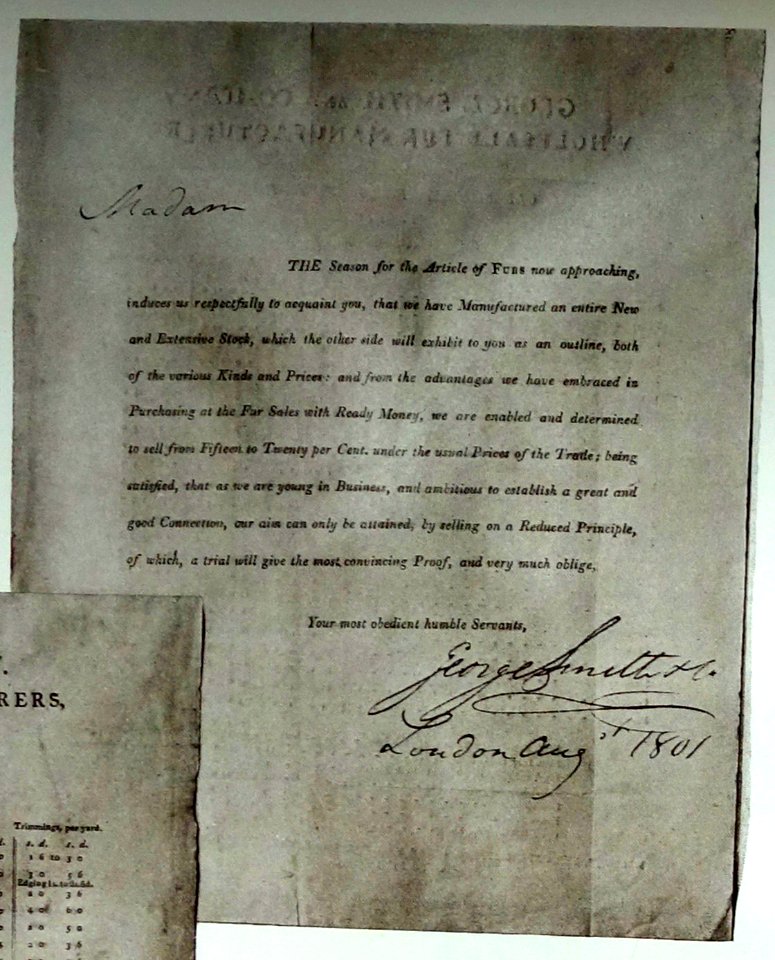 GEORGE SMITH and COMPANY
WHOLESALE FUR MANUFACTURER
Madam
THE Season for the Article of FURS now approaching,
induces us respectfully to acquaint you, that we have Manufactured an entire New
and Extensive Stock, which the other side will exhibit to you as an outline, both
of the various Kinds and Prices: and from the advantages we have embraced in
Purchasing at the Fur Sales with Ready Money, we are enabled and determined
to sell from Fifteen to Twenty per Cent. under the usual Prices of the Trade; being
satisfied, that as we are young in Business, and ambitious to establish a great and
good Connection, our aim can only be attained, by selling on a Reduced Principle,
of which, a trial will give the most convincing Proof, and very much oblige,
Your most obedient humble Servants,
George Smith & Co.
London Augst 1801
RERS,
Trimmings, per yard.
s. d. s. d.
1 6 to 3 0
3 0 5 6
Edging
2 0 3 6
4 0 6 0
2 0 5 0
2 0 3 6